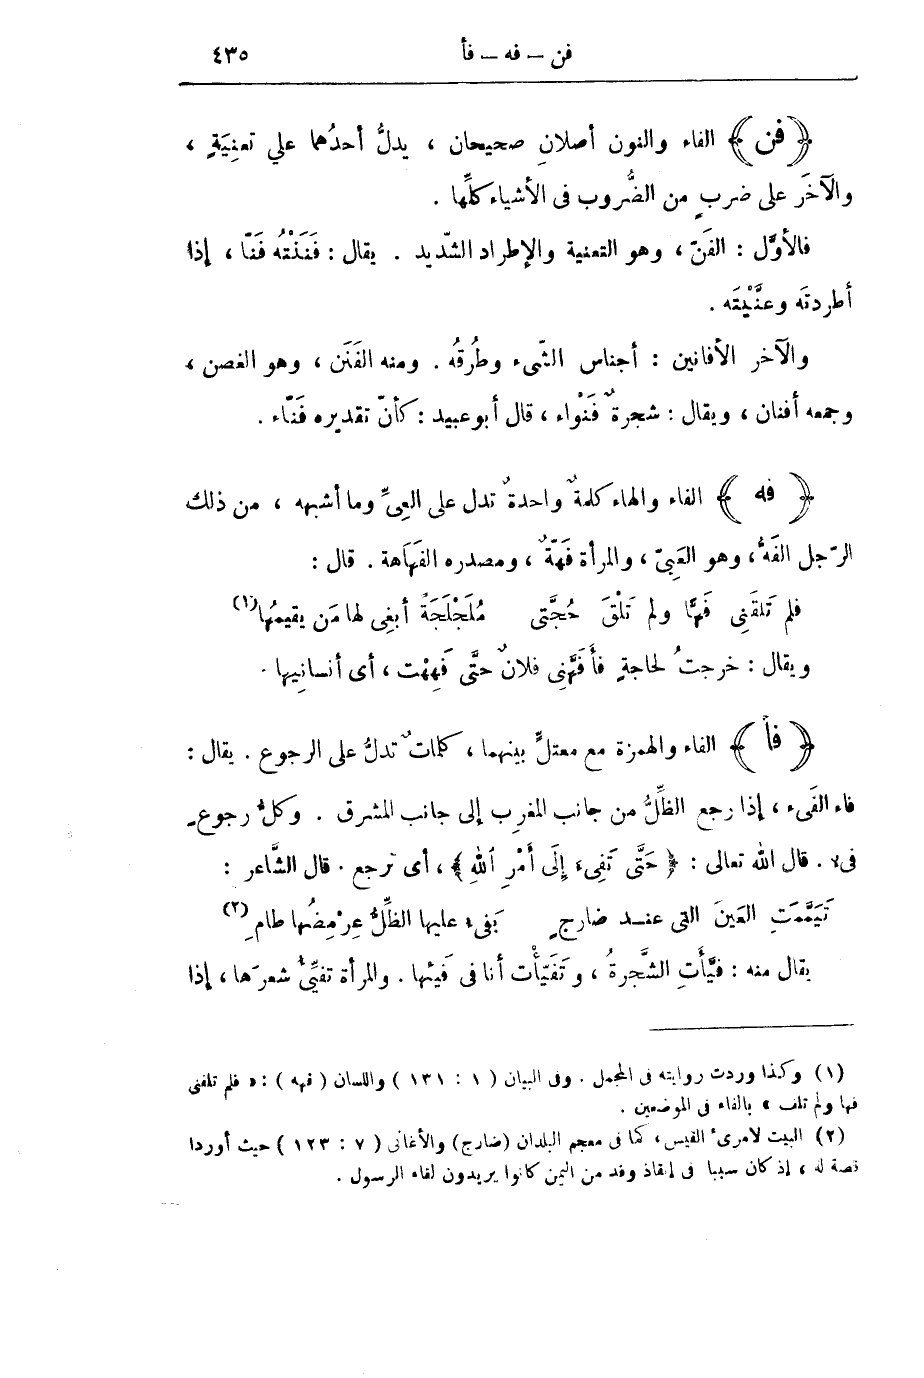 فن – فه – فأ ٤٣٥
﴿ فن ﴾ الفاء والنون أصلانِ صحيحان ، يدلُّ أحدُهما على تعنِيَةٍ ،
والآخَر على ضربٍ من الضُّروب فى الأشياء كلِّها .
فالأوّل : الفَنّ ، وهو التعنية والإطراد الشّديد . يقال : فَنَنْتُه فَنًّا ، إذا
أطردتَه وعنَّيْتَه .
والآخر الأفانين : أجناس الشّىء وطُرقُه . ومنه الفَنَن ، وهو الغصن ،
وجمعه أفنان ، ويقال : شجرةٌ فَنْواء ، قال أبو عبيد : كأنّ تقديره فَنّاء .
﴿ فه ﴾ الفاء والهاء كلمةٌ واحدةٌ تدل على العِىِّ وما أشبهه ، من ذلك
الرّجل الفَهُّ ، وهو العَيِىّ ، والمرأة فَهّةٌ ، ومصدره الفَهَاهة . قال :
فلم تَلقَنِى فَهًّا ولم تَلْقَ حُجَّتى مُلَجْلَجَةً أبغِى لها مَن يقيمُها(١)
ويقال : خرجتُ لحاجةٍ فأَفَهَّنِى فلانٌ حتَّى فَهِهْت ، أى أنسانِيها .
﴿ فأ ﴾ الفاء والهمزة مع معتلٍّ بينهما ، كلماتٌ تدلُّ على الرجوع . يقال :
فاء الفَىء ، إذا رجع الظِّلُّ من جانب المغرِب إلى جانب المشرق . وكلُّ رجوعٍ
فىء . قال الله تعالى : ﴿ حَتَّى تَفِىءَ إِلَى أَمْرِ ٱللهِ ﴾ ، أى ترجع . قال الشَّاعر :
تَيَمَّمَتِ العَينَ التى عنــد ضارجٍ يَفىء عليها الظِّلُّ عِرْمِضُها طامِ(٢)
يقال منه : فيَّأَتِ الشَّجرةُ ، وتَفَيّأْت أنا فى فَيئها . والمرأة تفيِّئُ شعرَها ، إذا
(١) وكذا وردت روايته فى المجمل . وفى البيان ( ١ : ١٣١ ) واللسان ( فهه ) : « فلم تلفنى
فها ولم تلف » بالفاء فى الموضعين .
(٢) البيت لامرىء القيس ، كما فى معجم البلدان (ضارج) والأغانى ( ٧ : ١٢٣ ) حيث أوردا
قصة له ، إذ كان سببا فى إنقاذ وفد من اليمن كانوا يريدون لقاء الرسول .